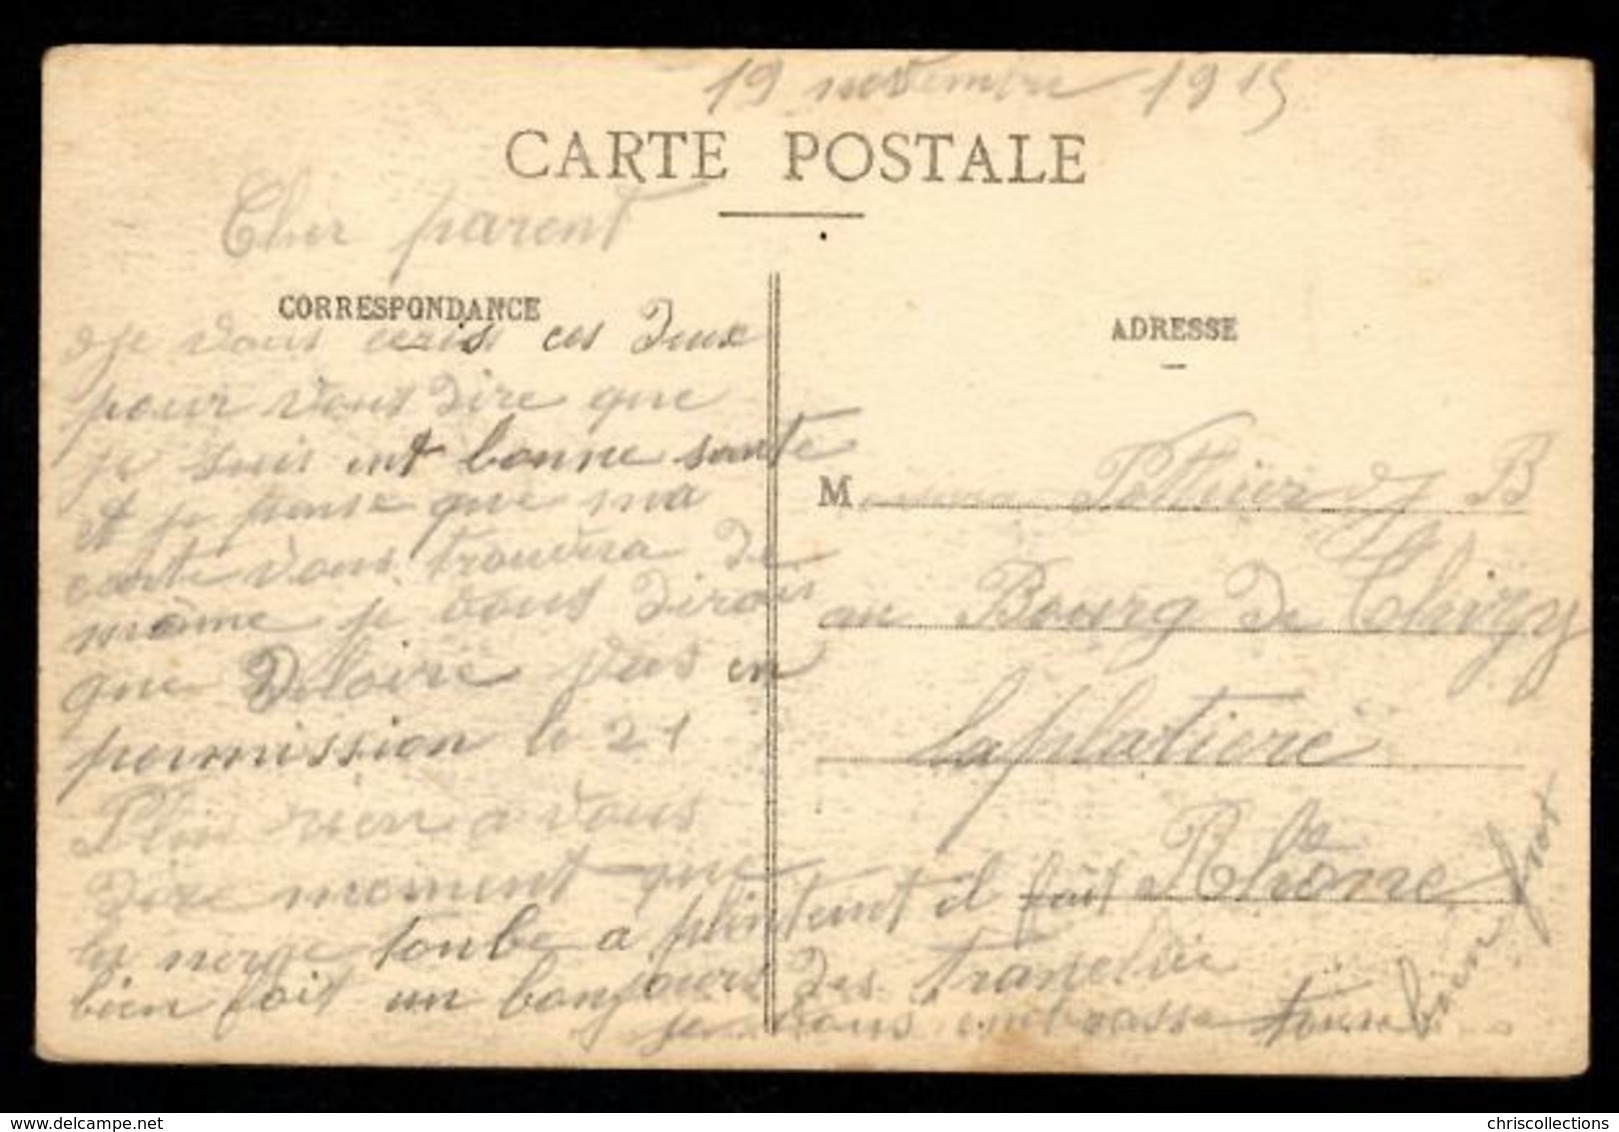 19 novembre 1915
CARTE POSTALE
Cher parent
CORRESPONDANCE
je vous ecris ces deux
pour vous dire que
je suis ent bonne sante
et je panse que ma
carte vous trouvera de
même je vous dirais
que Deloire par en
permission le 21
Plus rien a vous
dire moment que
la nerge tonbe a plintent il fait bien frot
bien fait un bonjours des tranchée
je vous embrasse tous
ADRESSE
M Pottier B
au Bourg de Thizy
laplatiere
Rhône
chriscollections